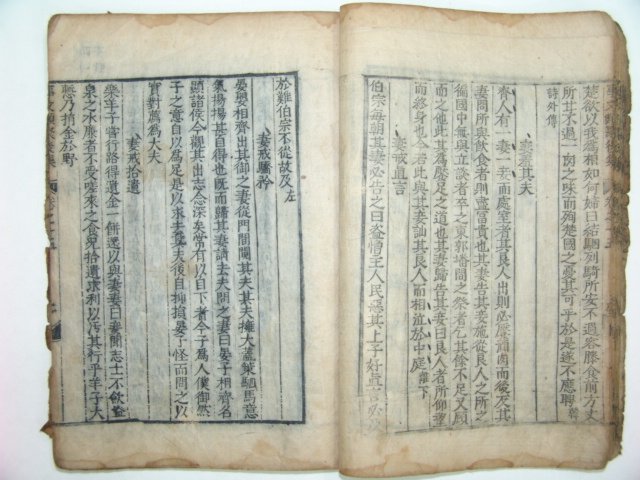 楚欲以我爲相如何婦曰結駟列騎所安不過容膝食前方丈
所甘不過一肉之味而殉楚國之憂其可乎於是遂不應聘韓
詩外傳
妻羞其夫
齊人有一妻一妾而處室者其良人出則必饜酒肉而後反其
妻問所與飲食者則盡富貴也其妻告其妾施從良人之所之
徧國中無與立談者卒之東郭墦間之祭者乞其餘不足又顧
而之他此其爲饜足之道也其妻歸告其妾曰良人者所仰望
而終身也今若此與其妾訕其良人而相泣於中庭離下
妻戒直言
伯宗每朝其妻必告之曰盜憎主人民惡其上子好直言必及
於難伯宗不從故及左
妻戒驕矜
晏嬰相齊出其御之妻從門間闚其夫其夫擁大蓋策駟馬意
氣揚揚甚自得也既而歸其妻請去夫問之妻曰晏子相齊名
顯諸侯今觀其出志念深矣常有以自下者今子爲人僕御然
子之意自以爲足是以求去其夫後自抑損晏子怪而問之以
實對薦爲大夫
妻戒拾遺
樂羊子嘗行路得遺金一餅還以與妻妻曰妾聞志士不飲盜
泉之水廉者不受嗟來之食況拾遺求利以污其行乎羊子大
慙乃捐金於野